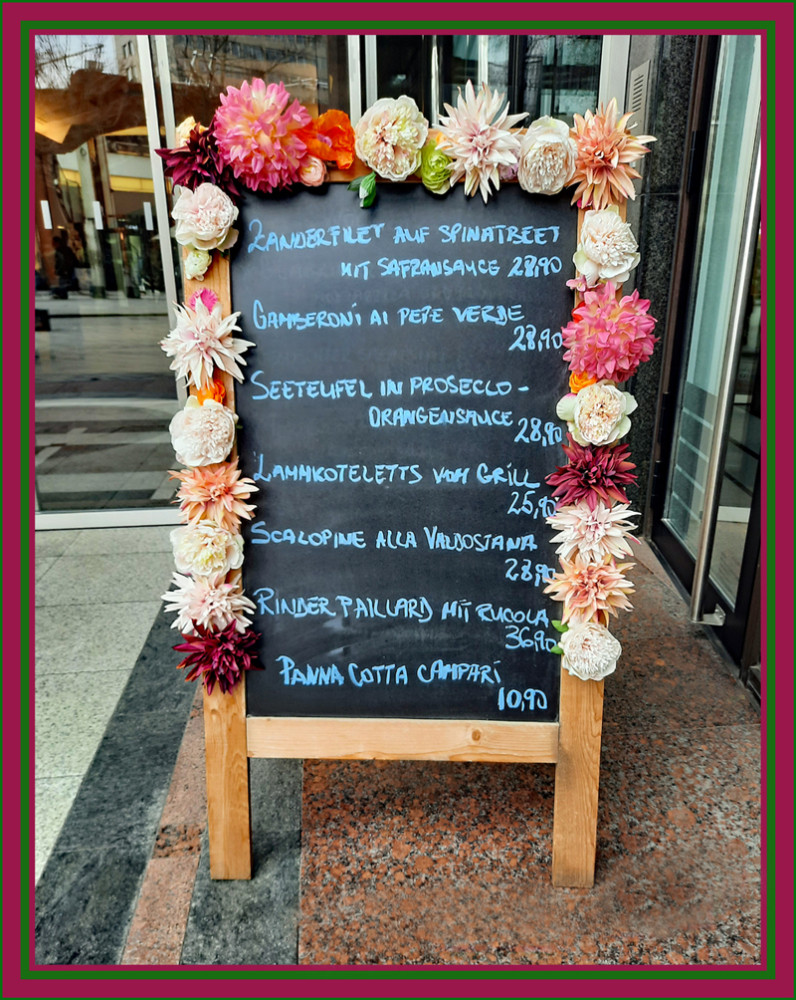 ZANDERFILET AUF SPINATBEET
MIT SAFRANSAUCE 28,90
GAMBERONI AI PEPE VERDE
28,90
SEETEUFEL IN PROSECCO-
ORANGENSAUCE
28,90
LAMMKOTELETTS VOM GRILL
25,90
SCALOPINE ALLA VALDOSTANA
28,90
RINDER PAILLARD MIT RUCOLA
36,90
PANNA COTTA CAMPARI
10,90